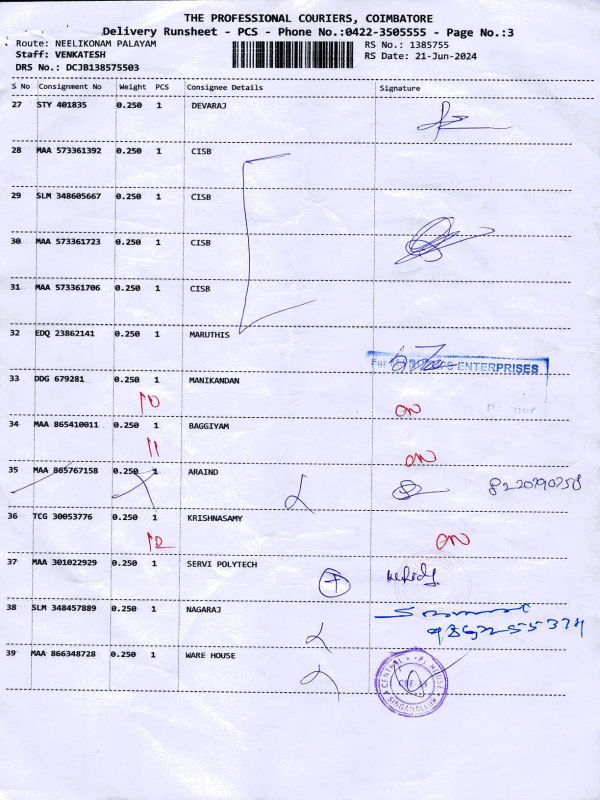 THE PROFESSIONAL COURIERS, COIMBATORE
Delivery Runsheet - PCS - Phone No.:0422-3505555 - Page No.:3
Route: NEELIKONAM PALAYAM RS No.: 1385755
Staff: VENKATESH RS Date: 21-Jun-2024
DRS No.: DCJB138575503
S No Consignment No Weight PCS Consignee Details Signature
27 STY 401835 0.250 1 DEVARAJ
28 MAA 573361392 0.250 1 CISB
29 SLM 348605667 0.250 1 CISB
30 MAA 573361723 0.250 1 CISB
31 MAA 573361706 0.250 1 CISB
32 EDQ 23862141 0.250 1 MARUTHIS
For ENTERPRISES
33 DDG 679281 0.250 1 MANIKANDAN
10 ON
34 MAA 865410011 0.250 1 BAGGIYAM
11 ON
35 MAA 865767158 0.250 1 ARAIND
8220790258
36 TCG 30053776 0.250 1 KRISHNASAMY
12 ON
37 MAA 301022929 0.250 1 SERVI POLYTECH
38 SLM 348457889 0.250 1 NAGARAJ
39 MAA 866348728 0.250 1 WARE HOUSE
CENTRAL HOUSE
SINGANALLUR